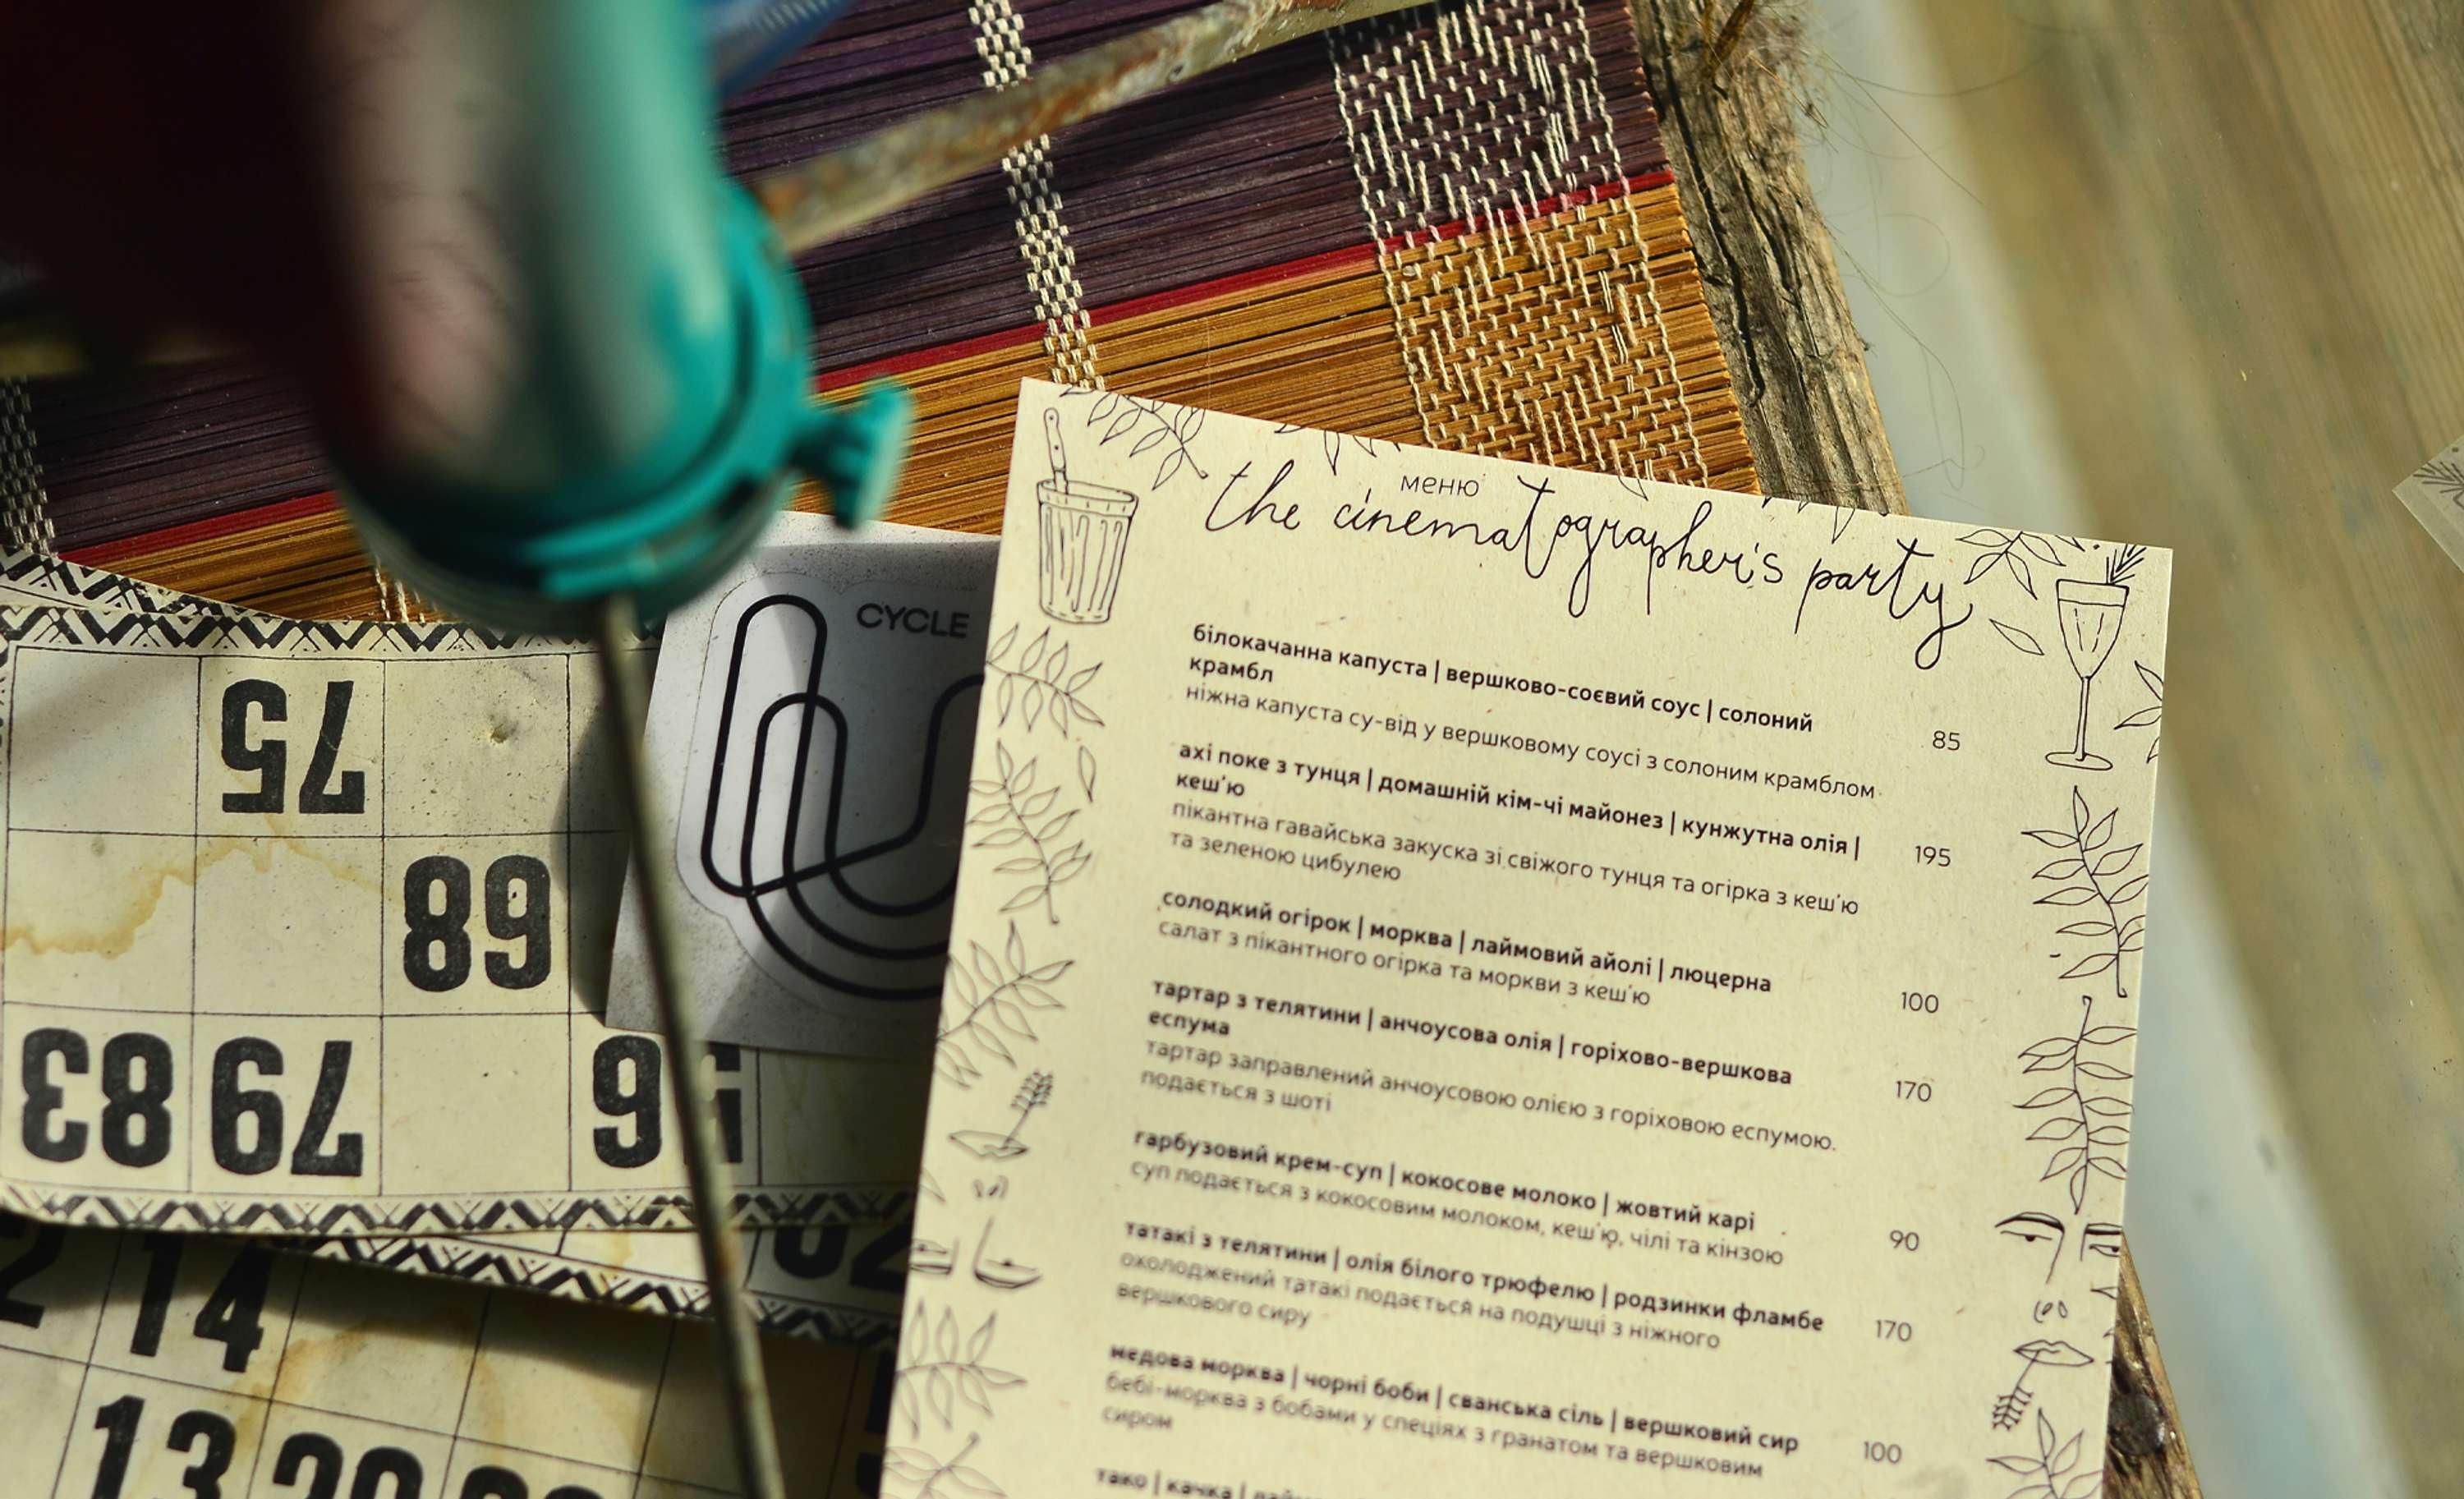 меню
the cinematographer's party
білокачанна капуста | вершково-соєвий соус | солоний
крамбл
85
ніжна капуста су-від у вершковому соусі з солоним крамблом
ахі поке з тунця | домашній кім-чі майонез | кунжутна олія |
кеш'ю
195
пікантна гавайська закуска зі свіжого тунця та огірка з кеш'ю
та зеленою цибулею
солодкий огірок | морква | лаймовий айолі | люцерна
100
салат з пікантного огірка та моркви з кеш'ю
тартар з телятини | анчоусова олія | горіхово-вершкова
еспума
170
тартар заправлений анчоусовою олією з горіховою еспумою.
подається з шоті
гарбузовий крем-суп | кокосове молоко | жовтий карі
90
суп подається з кокосовим молоком, кеш'ю, чілі та кінзою
татакі з телятини | олія білого трюфелю | родзинки фламбе
170
охолоджений татакі подається на подушці з ніжного
вершкового сиру
медова морква | чорні боби | сванська сіль | вершковий сир
100
бебі-морква з бобами у спеціях з гранатом та вершковим
сиром
тако | качка |
CYCLE
75
89
83 79
14
13